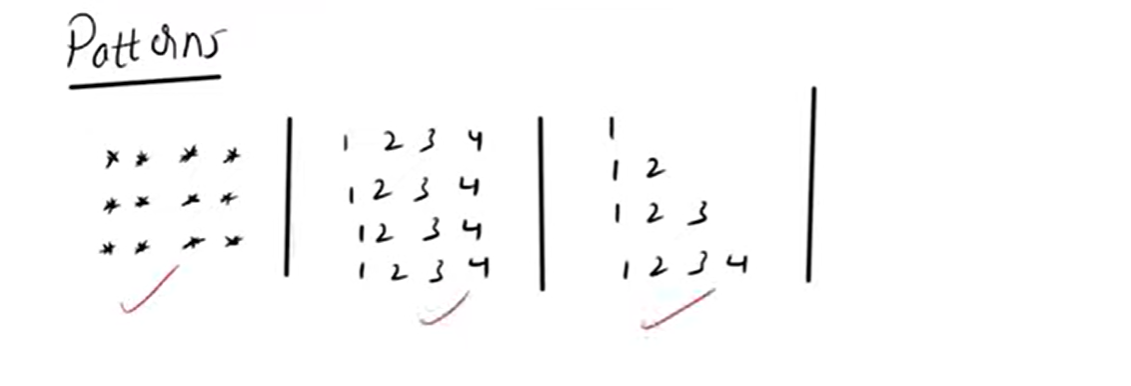 Patterns
* * * *
* * * *
* * * *
1 2 3 4
1 2 3 4
1 2 3 4
1 2 3 4
1
1 2
1 2 3
1 2 3 4